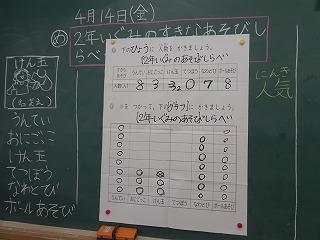 4月14日(金)
め 2年1くみのすきなあそびしらべ
けん玉
(なまえ)
うんてい
おにごっこ
けん玉
てつぼう
なわとび
ボールあそび
下のひょうに、人数を かきましょう。
2年1くみのあそびしらべ
うんてい おにごっこ けん玉 てつぼう なわとび ボールあそび
人数(人) 8 3 3 2 0 7 8
つかって、下のグラフに かきましょう。
2年1くみのあそびしらべ
うんてい おにごっこ けん玉 てつぼう なわとび ボールあそび
にんき
人気